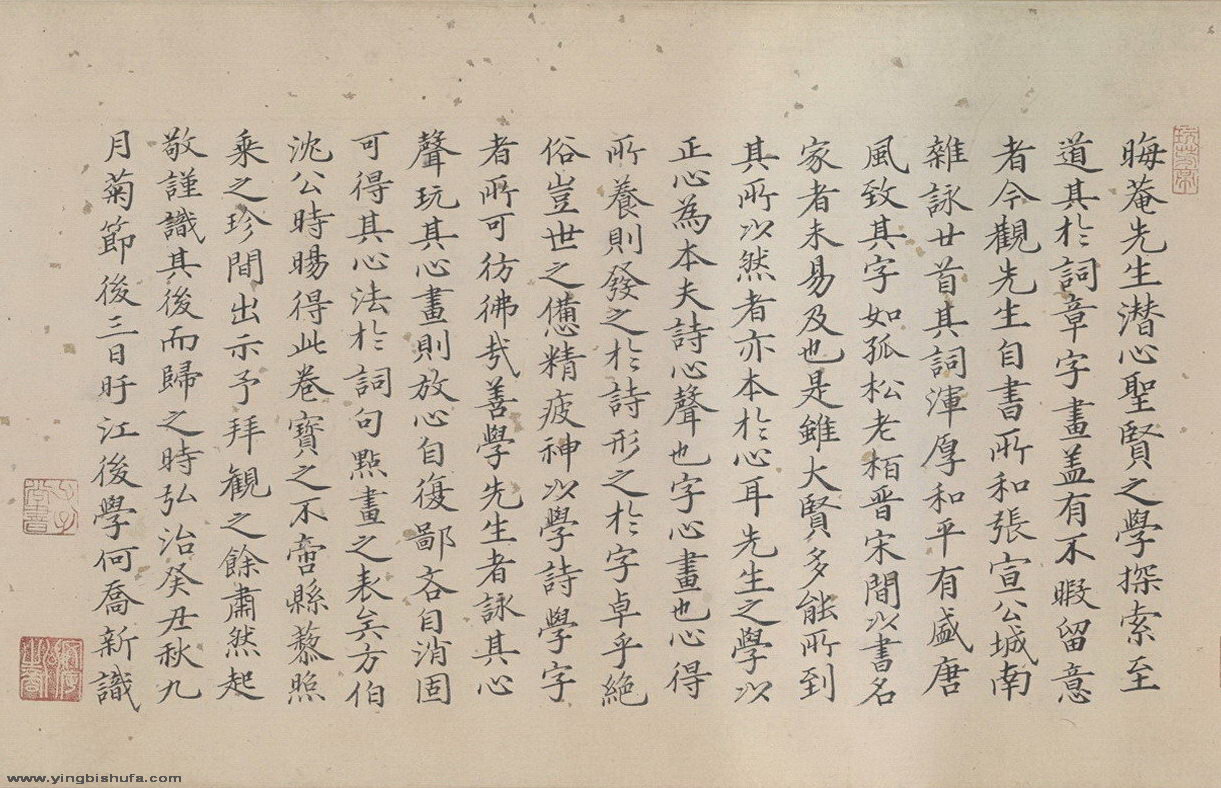 晦菴先生潜心聖賢之學探索至
道其扵詞章字畫盖有不暇留意
者今觀先生自書所和張宣公城南
雜詠廿首其詞渾厚和平有盛唐
風致其字如孤松老栢晋宋間以書名
家者未易及也是雖大賢多能所到
其所以然者亦本扵心耳先生之學以
正心為本夫詩心聲也字心畫也心得
所養則發之扵詩形之扵字卓乎絶
俗豈世之憊精疲神以學詩學字
者所可彷彿哉善學先生者詠其心
聲玩其心畫則放心自復鄙吝自消固
可得其心法扵詞句點畫之表矣方伯
沈公時暘得此卷寶之不啻縣藜照
乘之珍間出示予拜観之餘肅然起
敬謹識其後而歸之時弘治癸丑秋九
月菊節後三日盱江後學何喬新識
www.yingbishufa.com